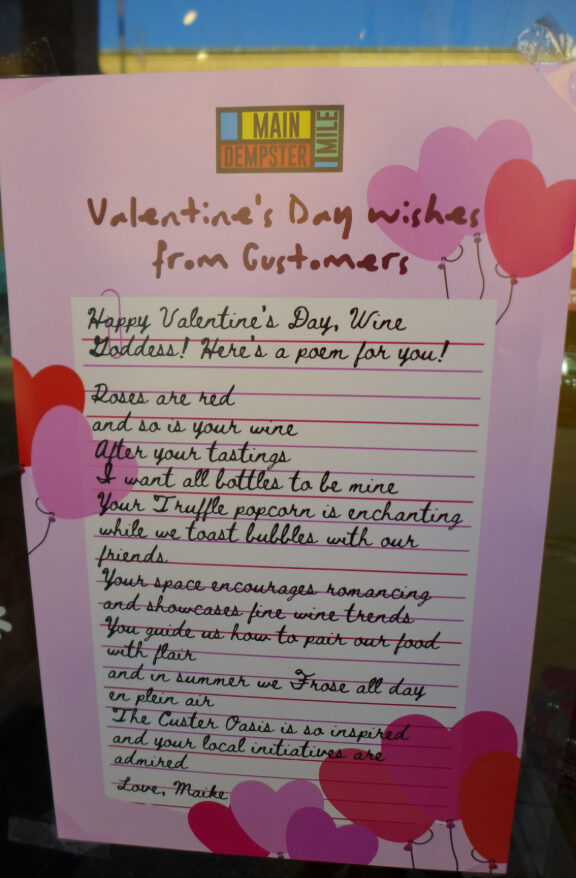 MAIN
DEMPSTER
MILE
Valentine's Day wishes
from Customers
Happy Valentine's Day, Wine
Goddess! Here's a poem for you!
Roses are red
and so is your wine
After your tastings
I want all bottles to be mine
Your Truffle popcorn is enchanting
while we toast bubbles with our
friends
Your space encourages romancing
and showcases fine wine trends
You guide us how to pair our food
with flair
and in summer we Frose all day
en plein air
The Custer Oasis is so inspired
and your local initiatives are
admired
Love, Maike